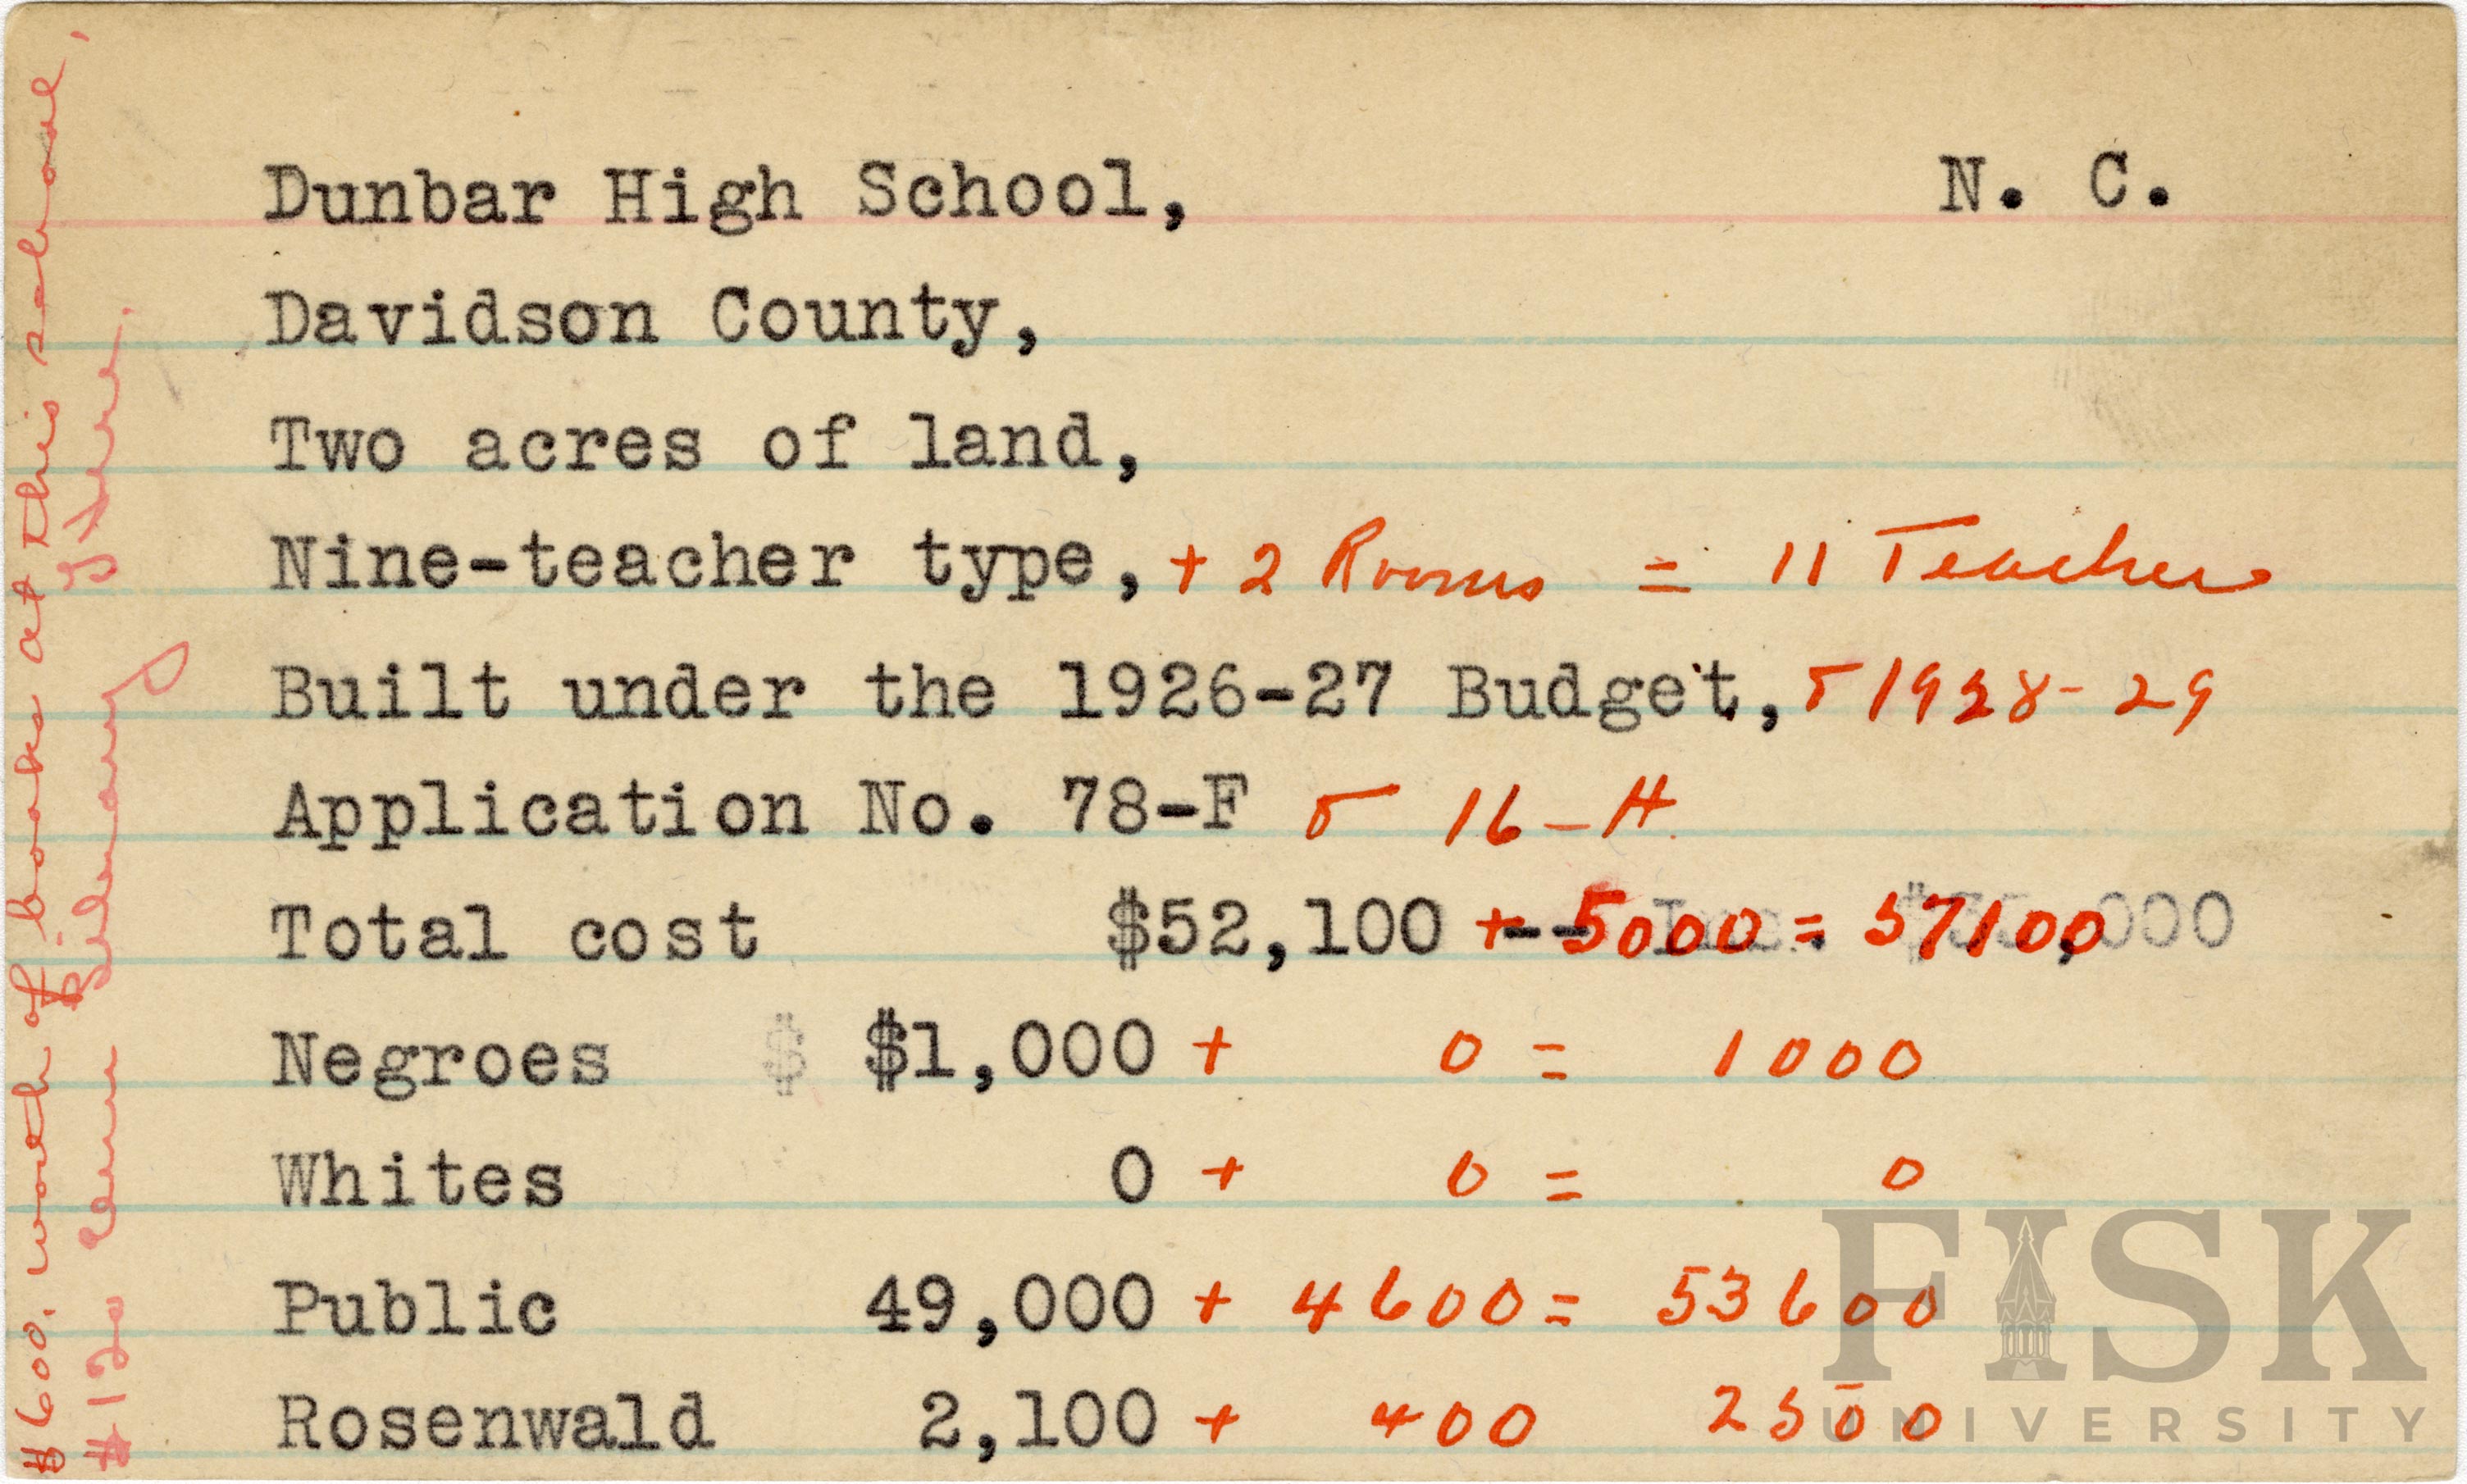 Dunbar High School, N. C.
Davidson County,
Two acres of land,
Nine-teacher type, + 2 Rooms = 11 Teacher
Built under the 1926-27 Budget, & 1928-29
Application No. 78-F & 16-H
Total cost $52,100 + 5000 = 57100
Negroes $ $1,000 + 0 = 1000
Whites 0 + 0 = 0
Public 49,000 + 4600 = 53600
Rosenwald 2,100 + 400 2500
$600. worth of books at this school,
$120 Elem Library
FISK
UNIVERSITY